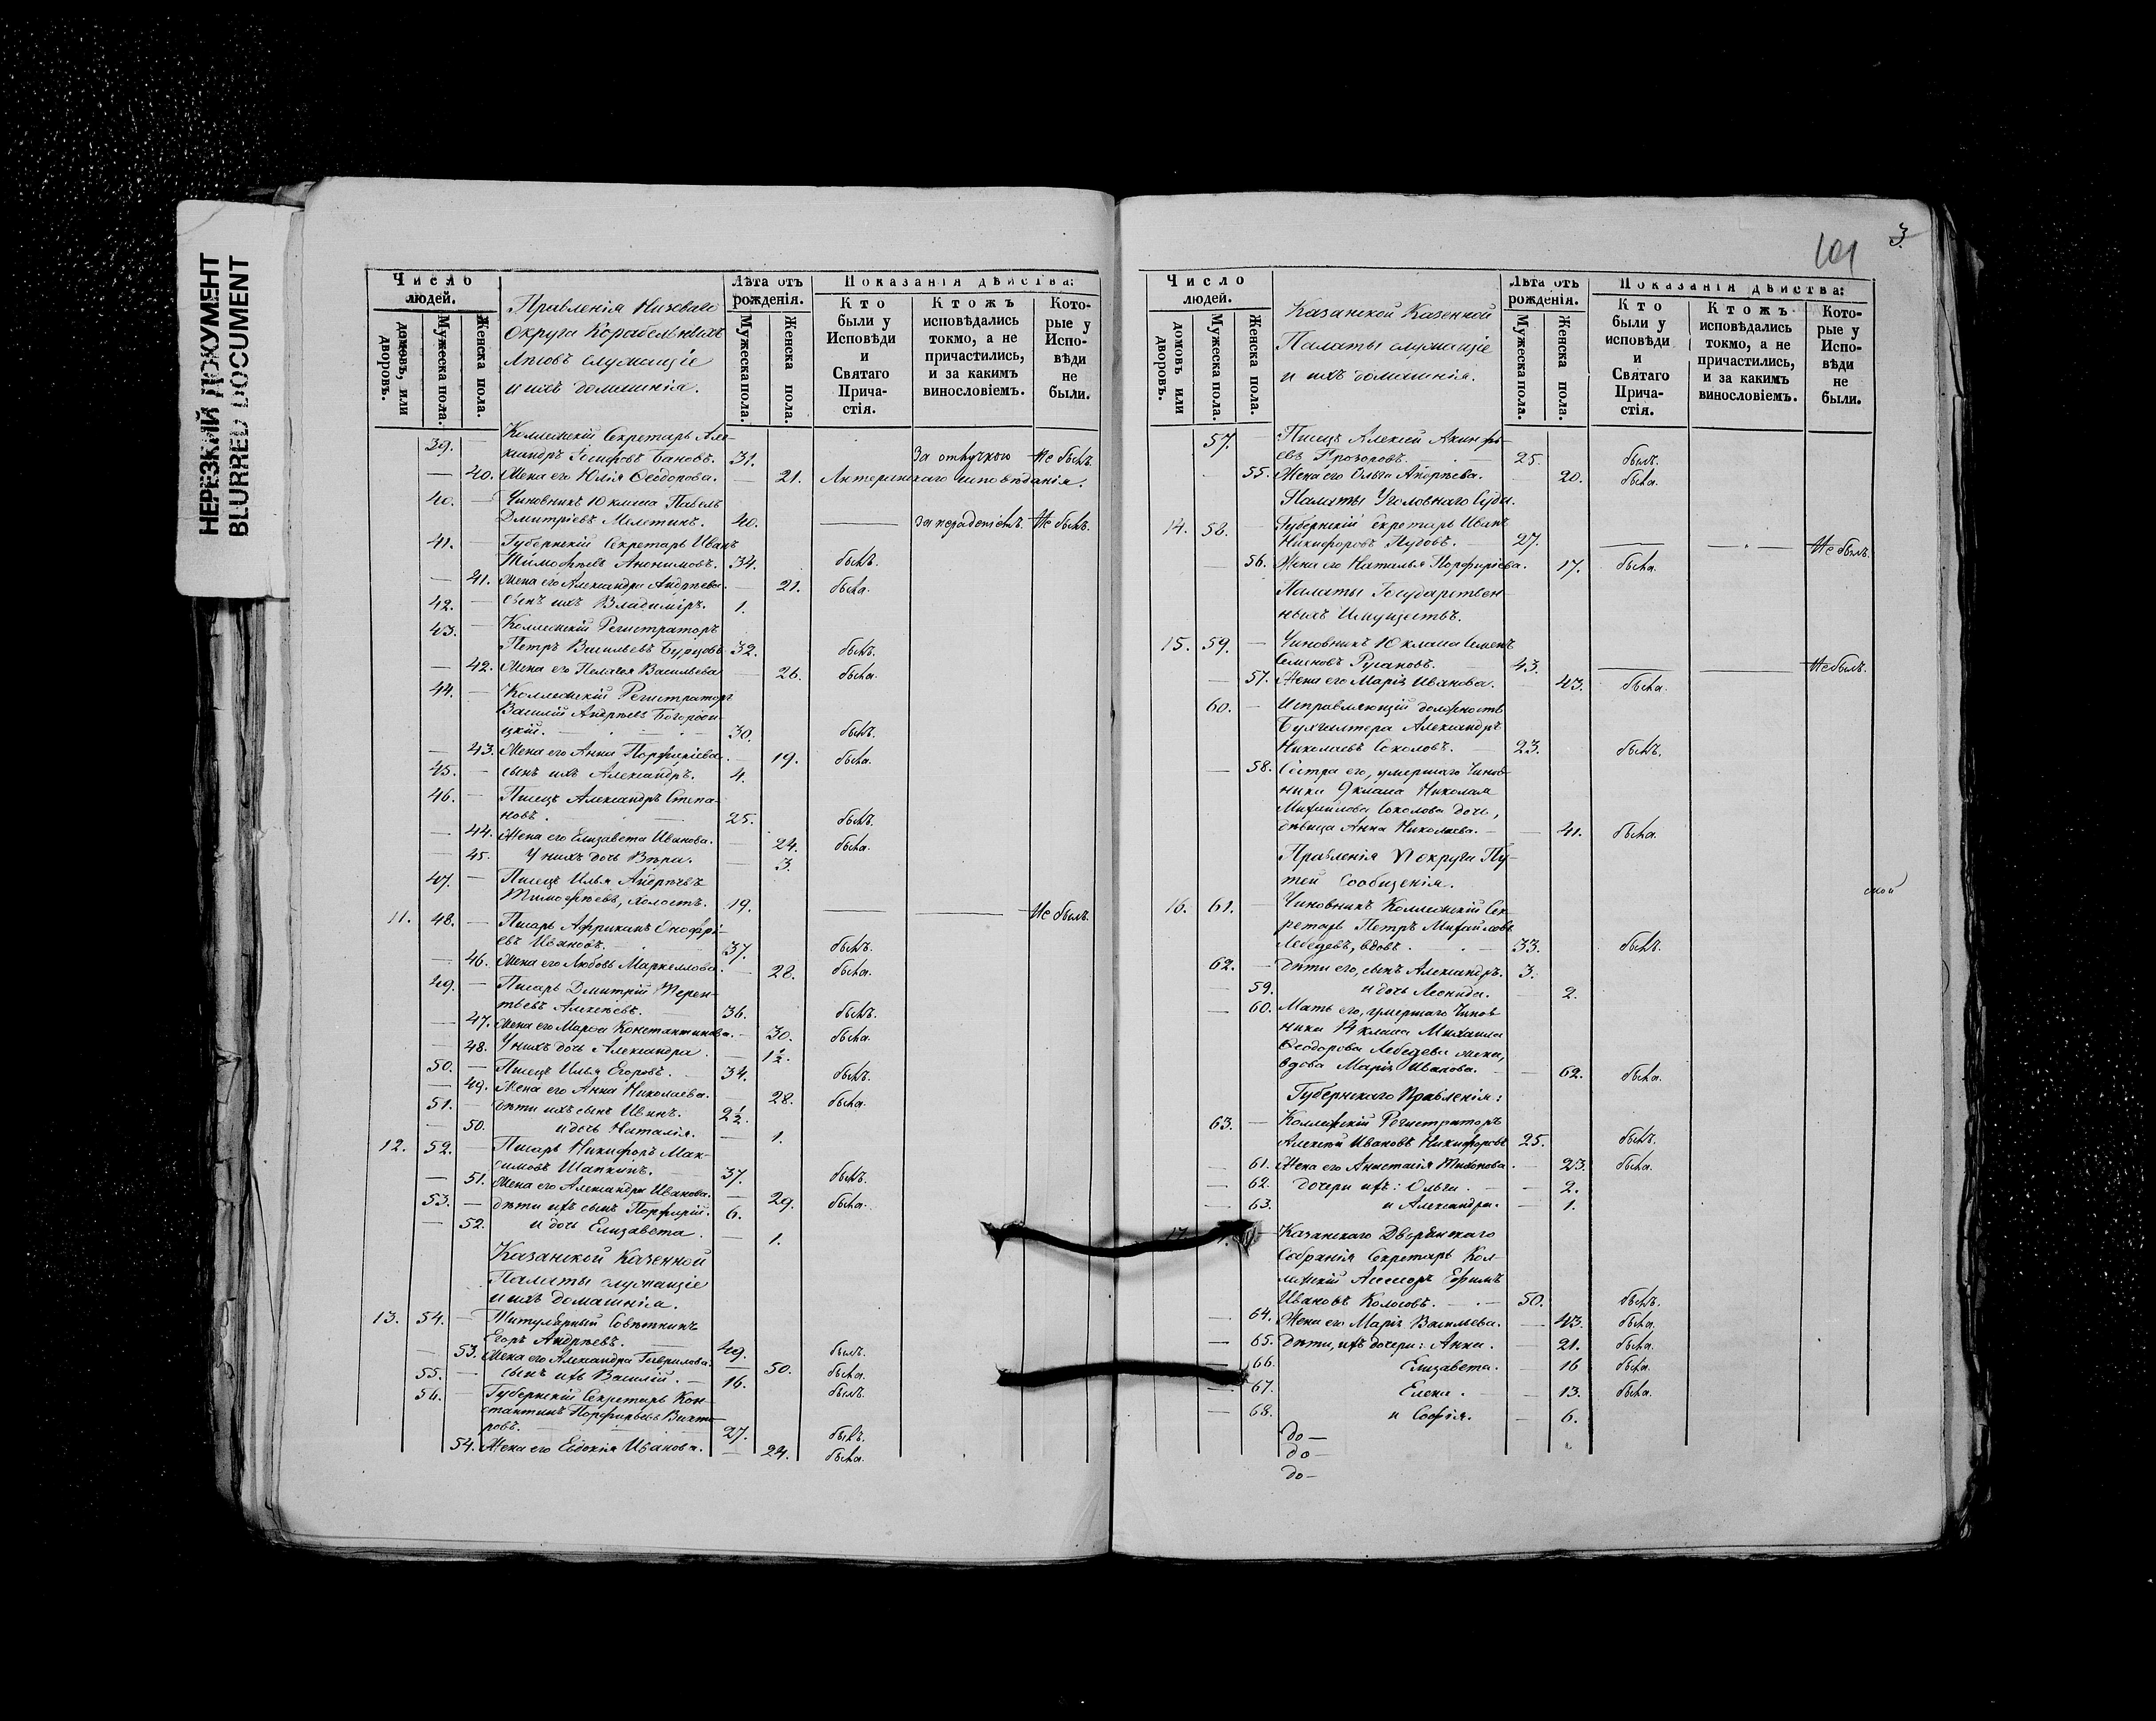 НЕРЕЗКИЙ ДОКУМЕНТ
BLURRED DOCUMENT
Число людей.
домовъ, или дворовъ.
Мужеска пола.
Женска пола.
Правленія Низоваго
Округа Корабельныхъ
лѣсовъ служащіе
и ихъ домашнія.
Лѣта отъ рожденія.
Мужеска пола.
Женска пола.
Показанія дѣйства:
Кто были у Исповѣди и Святаго Причастія.
Ктожъ исповѣдались токмо, а не причастились, и за какимъ винословіемъ.
Которые у Исповѣди не были.
39. — Коллежскій Секретарь Але-
ксандръ Іосифовъ Бановъ. 31. За отлучкою Не былъ.
— 40. Жена его Юлія Ѳеодорова. — 21. Лютеранскаго исповѣданія.
40. — Чиновникъ 10 класса Павелъ
Дмитріевъ Милютинъ. 40. — за нерадѣніемъ Не былъ.
41. — Губернскій Секретарь Иванъ
Тимофѣевъ Анонимовъ. 34. былъ.
— 41. Жена его Александра Андреева. — 21. была.
42. — Сынъ ихъ Владиміръ. 1.
43. — Коллежскій Регистраторъ
Петръ Васильевъ Бурцовъ 32. былъ.
— 42. Жена его Пелагея Васильева — 26. была.
44. — Коллежскій Регистраторъ
Василій Андреевъ Богороди-
цкій. 30. былъ.
— 43. Жена его Анна Порфиріева. — 19. была.
45. — сынъ ихъ Александръ. 4.
46. — Писецъ Александръ Степа-
новъ. 25. былъ.
— 44. Жена его Елизавета Иванова. 24. была.
— 45. У нихъ дочь Вѣра. — 3.
47. — Писецъ Илья Андреевъ
Тимофѣевъ, холостъ. 19. — — Не былъ.
11. 48. — Писарь Африканъ Онофрі-
евъ Ивановъ. 37. былъ.
— 46. Жена его Любовь Маркеллова. 28. была.
49. — Писарь Дмитрій Терен-
тьевъ Алексѣевъ. 36. былъ.
— 47. Жена его Марѳа Константинова. — 30. была.
— 48. У нихъ дочь Александра. — 1½.
50. — Писецъ Илья Егоровъ. — 34. былъ.
— 49. Жена его Анна Николаева. — 28. была.
51. — дѣти ихъ сынъ Иванъ. 2½.
— 50. и дочь Наталія. — 1.
12. 52. — Писарь Никифоръ Мак-
симовъ Шапкинъ. 37. былъ.
— 51. Жена его Александра Иванова. — 29. была.
53. — дѣти ихъ сынъ Порфирій. 6.
— 52. и дочь Елизавета. — 1.
Казанской Казенной
Палаты служащіе
и ихъ домашнія.
13. 54. — Титулярный Совѣтникъ
Егоръ Андреевъ. 49. былъ.
— 53. Жена его Александра Гаврилова. — 50. была.
55. — Сынъ ихъ Василій. — 16. былъ.
56. — Губернскій Секретарь Кон-
стантинъ Порфирьевъ Викто-
ровъ. 27. былъ.
54. Жена его Евдокія Иванова. — 24. была.
101
3.
Число людей.
домовъ или дворовъ.
Мужеска пола.
Женска пола.
Казанской Казенной
Палаты служащіе
и ихъ домашнія.
Лѣта отъ рожденія.
Мужеска пола.
Женска пола.
Показанія дѣйства:
Кто были у исповѣди и Святаго Причастія.
Ктожъ исповѣдались токмо, а не причастились, и за какимъ винословіемъ.
Которые у Исповѣди не были.
57. — Писецъ Алексѣй Акинфі-
евъ Прозоровъ. 25. былъ.
— 55. Жена его Ольга Андреева. 20. была.
Палаты Уголовнаго Суда.
14. 58. — Губернскій Секретарь Иванъ
Никифоровъ Пуговъ. 27. — — Не былъ.
— 56. Жена его Наталья Порфиріева. 17. была.
Палаты Государствен-
ныхъ Имуществъ.
15. 59. — Чиновникъ 10 класса Семенъ
Семеновъ Русановъ. 43. — — Не былъ.
— 57. Жена его Марія Иванова. — 43. была.
60. — Исправляющій должность
Бухгалтера Александръ
Николаевъ Соколовъ. — 23. былъ.
— 58. Сестра его, умершаго Чинов-
ника 9 класса Николая
Михайлова Соколова дочь,
дѣвица Анна Николаева. — — 41. была.
Правленія VI округа Пу-
тей Сообщенія.
ской
16. 61. — Чиновникъ Коллежскій Сек-
ретарь Петръ Михайловъ
Лебедевъ, вдовъ. 33. былъ.
62. — дѣти его, сынъ Александръ. 3.
— 59. и дочь Леонида. — 2.
— 60. Мать его, умершаго Чинов-
ника 14 класса Михаила
Ѳеодорова Лебедева жена,
вдова Марія Иванова. — — 62. была.
Губернскаго Правленія:
63. — Коллежскій Регистраторъ
Алексѣй Ивановъ Никифоровъ 25. былъ.
— 61. Жена его Анастасія Тихонова. — 23. была.
— 62. дочери ихъ: Ольга. — — 2.
— 63. и Александра. — 1.
17. — Казанскаго Дворянскаго
Собранія Секретарь Кол-
лежскій Ассесоръ Ефимъ
Ивановъ Колосовъ. — 50. былъ.
— 64. Жена его Марія Васильева. — 43. была.
— 65. Дѣти, ихъ дочери: Анна. — 21. была.
— 66. Елизавета. — 16 была.
— 67. Елена. — — 13. была.
— 68. и Софія. — 6.
до —
до —
до —